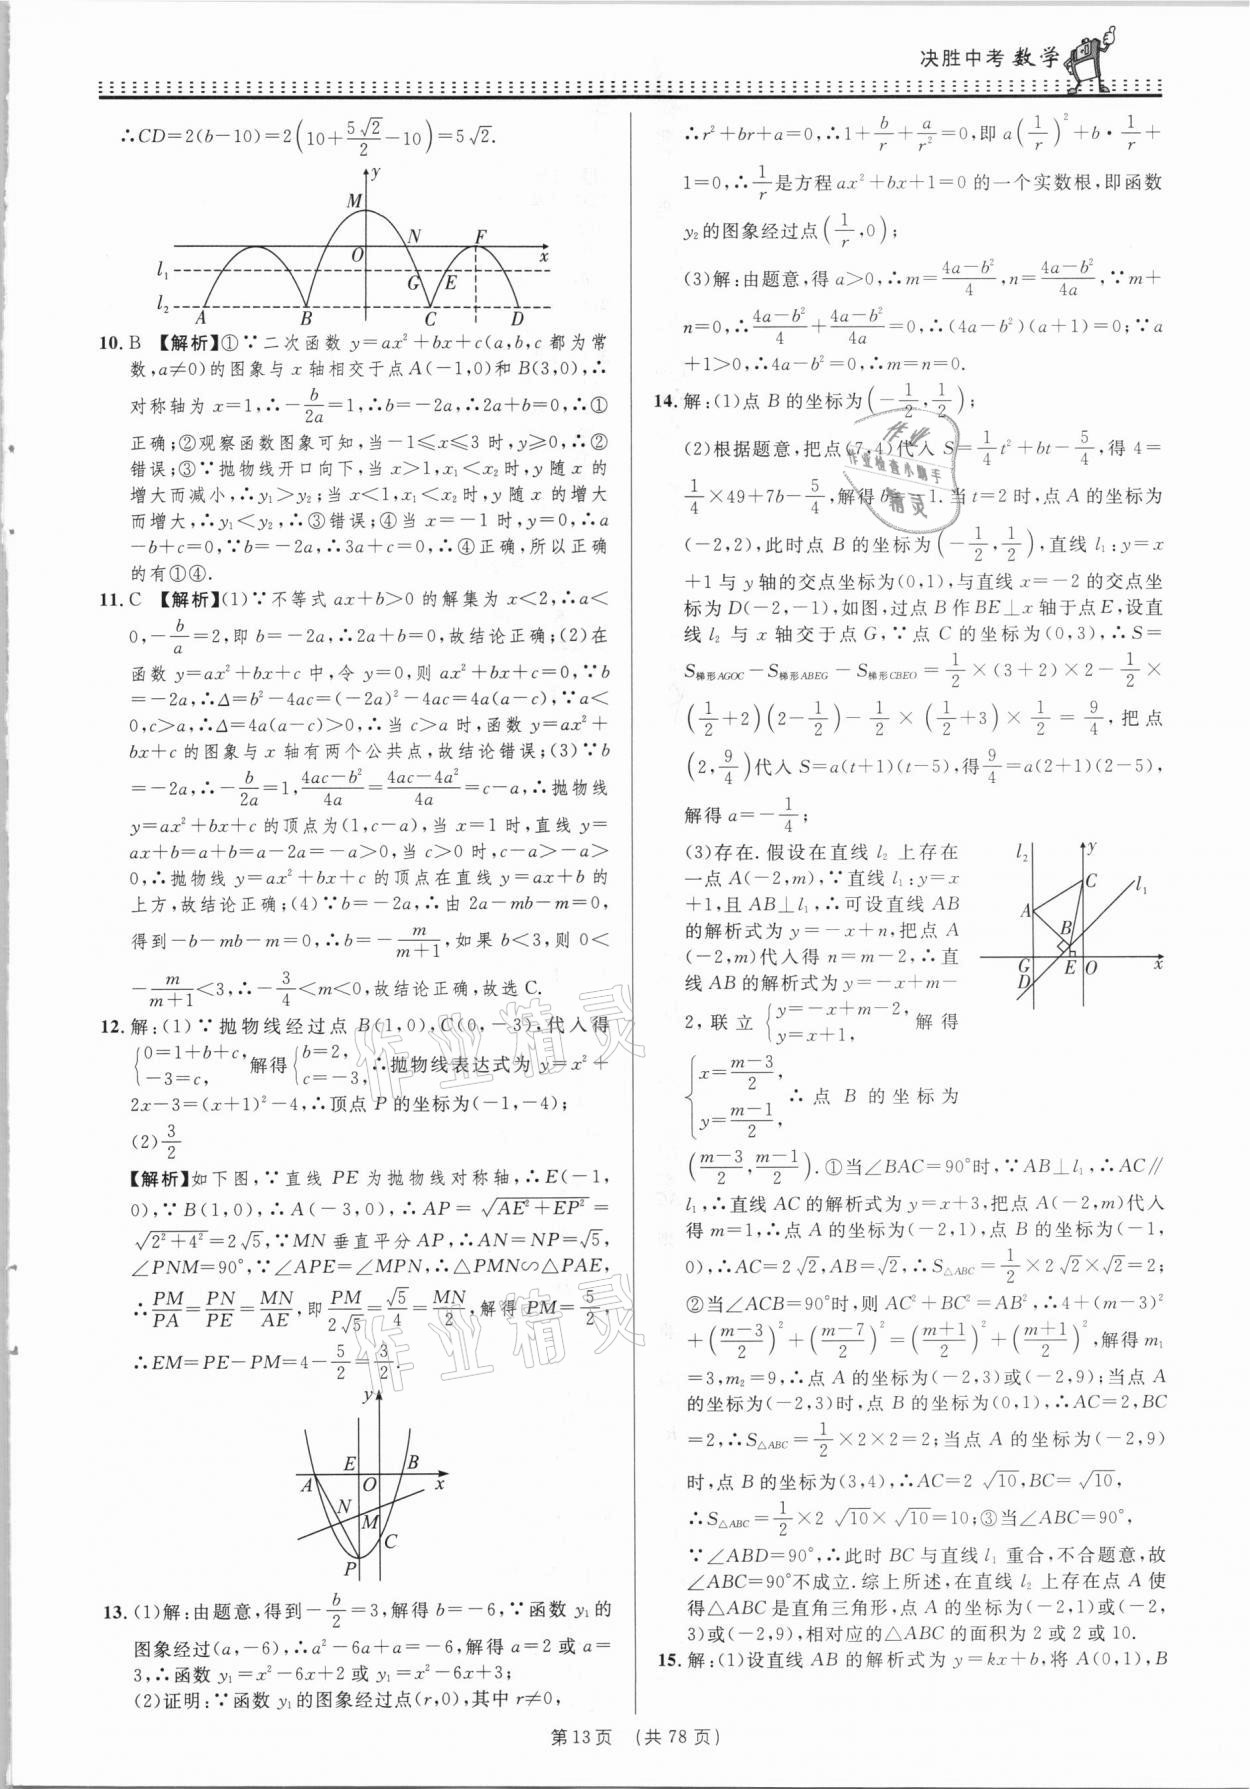 决胜中考 数学
∴CD=2(b-10)=2(10+5√2/2-10)=5√2.
y
M
O N F x
l₁ G E
l₂ A B C D
10. B 【解析】①∵二次函数 y=ax²+bx+c(a,b,c 都为常
数,a≠0)的图象与 x 轴相交于点A(-1,0)和B(3,0),∴
对称轴为 x=1,∴-b/2a=1,∴b=-2a,∴2a+b=0,∴①
正确;②观察函数图象可知,当-1⩽x⩽3 时,y⩾0,∴②
错误;③∵抛物线开口向下,当 x>1,x₁<x₂时,y 随 x 的
增大而减小,∴y₁>y₂;当 x<1,x₁<x₂时,y 随 x 的增大
而增大,∴y₁<y₂,∴③错误;④当 x=-1 时,y=0,∴a
-b+c=0,∵b=-2a,∴3a+c=0,∴④正确,所以正确
的有①④.
11. C 【解析】(1)∵不等式 ax+b>0 的解集为 x<2,∴a<
0,-b/a=2,即 b=-2a,∴2a+b=0,故结论正确;(2)在
函数 y=ax²+bx+c 中,令 y=0,则 ax²+bx+c=0,∵b
=-2a,∴Δ=b²-4ac=(-2a)²-4ac=4a(a-c),∵a<
0,c>a,∴Δ=4a(a-c)>0,∴当 c>a 时,函数 y=ax²+
bx+c 的图象与 x 轴有两个公共点,故结论错误;(3)∵b
=-2a,∴-b/2a=1,(4ac-b²)/4a=(4ac-4a²)/4a=c-a,∴抛物线
y=ax²+bx+c的顶点为(1,c-a),当 x=1 时,直线 y=
ax+b=a+b=a-2a=-a>0,当 c>0 时,c-a>-a>
0,∴抛物线 y=ax²+bx+c 的顶点在直线 y=ax+b 的
上方,故结论正确;(4)∵b=-2a,∴由 2a-mb-m=0,
得到-b-mb-m=0,∴b=-m/(m+1),如果 b<3,则 0<
-m/(m+1)<3,∴-3/4<m<0,故结论正确,故选C.
12. 解:(1)∵抛物线经过点 B(1,0),C(0,-3),代入得
{0=1+b+c, -3=c, 解得{b=2, c=-3, ∴抛物线表达式为 y=x²+
2x-3=(x+1)²-4,∴顶点 P 的坐标为(-1,-4);
(2)3/2
【解析】如下图,∵直线 PE 为抛物线对称轴,∴E(-1,
0),∵B(1,0),∴A(-3,0),∴AP=√(AE²+EP²)
=√(2²+4²)=2√5,∵MN垂直平分AP,∴AN=NP=√5,
∠PNM=90°,∵∠APE=∠MPN,∴△PMN∽△PAE,
∴PM/PA=PN/PE=MN/AE,即PM/2√5=√5/4=MN/2,解得 PM=5/2,
∴EM=PE-PM=4-5/2=3/2.
y
E B
A O x
N
M
C
P
13. (1)解:由题意,得到-b/2=3,解得 b=-6,∵函数 y₁的
图象经过(a,-6),∴a²-6a+a=-6,解得 a=2 或 a=
3,∴函数 y₁=x²-6x+2 或 y₁=x²-6x+3;
(2)证明:∵函数 y₁的图象经过点(r,0),其中 r≠0,
∴r²+br+a=0,∴1+b/r+a/r²=0,即 a(1/r)²+b·1/r+
1=0,∴1/r是方程 ax²+bx+1=0 的一个实数根,即函数
y₂的图象经过点(1/r,0);
(3)解:由题意,得 a>0,∴m=(4a-b²)/4,n=(4a-b²)/4a,∵m+
n=0,∴(4a-b²)/4+(4a-b²)/4a=0,∴(4a-b²)(a+1)=0;∵a
+1>0,∴4a-b²=0,∴m=n=0.
14. 解:(1)点 B 的坐标为(-1/2,1/2);
(2)根据题意,把点(7,4)代入 S=1/4t²+bt-5/4,得 4=
1/4×49+7b-5/4,解得b 1.当 t=2 时,点 A 的坐标为
(-2,2),此时点 B 的坐标为(-1/2,1/2),直线 l₁:y=x
+1 与 y 轴的交点坐标为(0,1),与直线 x=-2 的交点坐
标为 D(-2,-1),如图,过点 B 作 BE⊥x 轴于点 E,设直
线 l₂ 与 x 轴交于点 G,∵点 C 的坐标为(0,3),∴S=
S梯形AGOC-S梯形ABEG-S梯形CBEO=1/2×(3+2)×2-1/2×
(1/2+2)(2-1/2)-1/2×(1/2+3)×1/2=9/4,把点
(2,9/4)代入 S=a(t+1)(t-5),得9/4=a(2+1)(2-5),
解得 a=-1/4;
(3)存在.假设在直线 l₂ 上存在
一点A(-2,m),∵直线 l₁:y=x
+1,且 AB⊥l₁,∴可设直线 AB
的解析式为 y=-x+n,把点 A
(-2,m)代入得 n=m-2,∴直
线 AB 的解析式为 y=-x+m-
2,联立{y=-x+m-2, y=x+1, 解得
{x=(m-3)/2, y=(m-1)/2, ∴点 B 的坐标为
l₂ y
C l₁
A
B
G E O x
D
((m-3)/2,(m-1)/2).①当∠BAC=90°时,∵AB⊥l₁,∴AC∥
l₁,∴直线 AC 的解析式为 y=x+3,把点 A(-2,m)代入
得 m=1,∴点 A 的坐标为(-2,1),点 B 的坐标为(-1,
0),∴AC=2√2,AB=√2,∴S△ABC=1/2×2√2×√2=2;
②当∠ACB=90°时,则 AC²+BC²=AB²,∴4+(m-3)²
+((m-3)/2)²+((m-7)/2)²=((m+1)/2)²+((m+1)/2)²,解得 m₁
=3,m₂=9,∴点 A 的坐标为(-2,3)或(-2,9);当点 A
的坐标为(-2,3)时,点 B 的坐标为(0,1),∴AC=2,BC
=2,∴S△ABC=1/2×2×2=2;当点 A 的坐标为(-2,9)
时,点 B 的坐标为(3,4),∴AC=2√10,BC=√10,
∴S△ABC=1/2×2√10×√10=10;③当∠ABC=90°,
∵∠ABD=90°,∴此时 BC 与直线 l₁ 重合,不合题意,故
∠ABC=90°不成立.综上所述,在直线 l₂ 上存在点 A 使
得△ABC 是直角三角形,点 A 的坐标为(-2,1)或(-2,
3)或(-2,9),相对应的△ABC的面积为 2 或 2 或 10.
15. 解:(1)设直线 AB 的解析式为 y=kx+b,将 A(0,1),B
第13页 (共78页)
作业
作业检查小助手
精灵
作业精灵
作业精灵